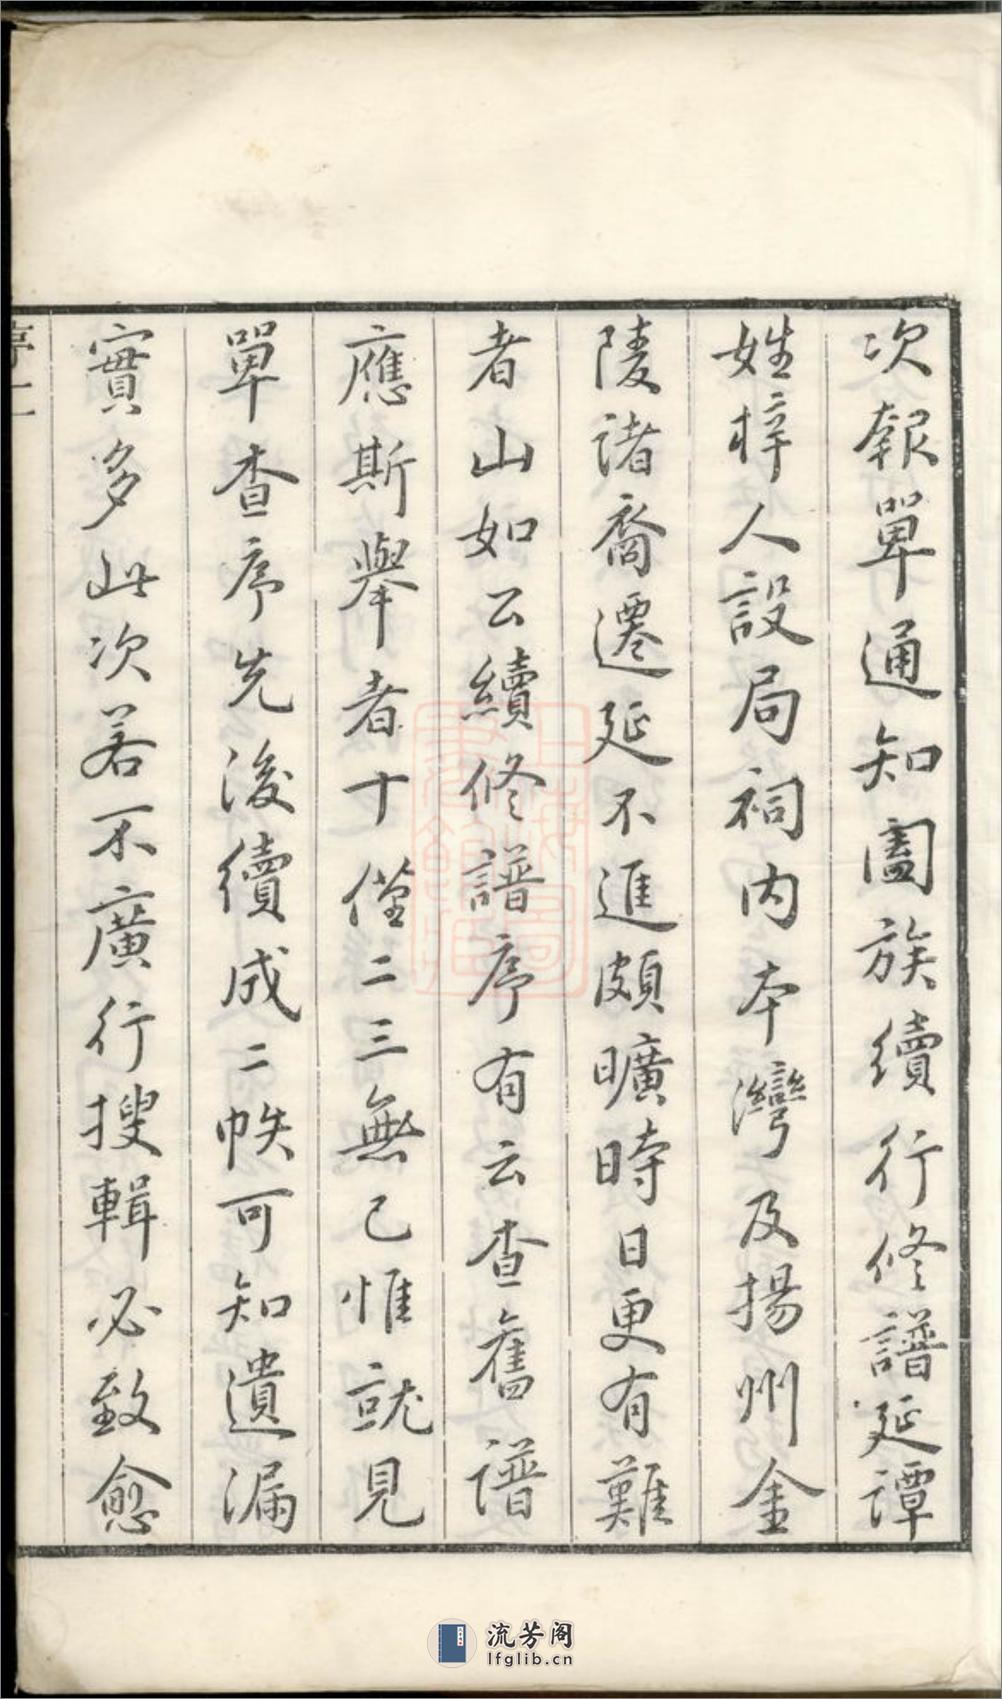 次報單通知闔族續行修譜延譚
姓梓人設局祠內本灣及揚州金
陵諸裔遷延不進頗曠時日更有難
者山如公續修譜序有云查舊譜
應斯舉者十僅二三無已惟就見
單查序先後續成二帙可知遺漏
實多此次若不廣行搜輯必致愈
流芳阁
lfglib.cn